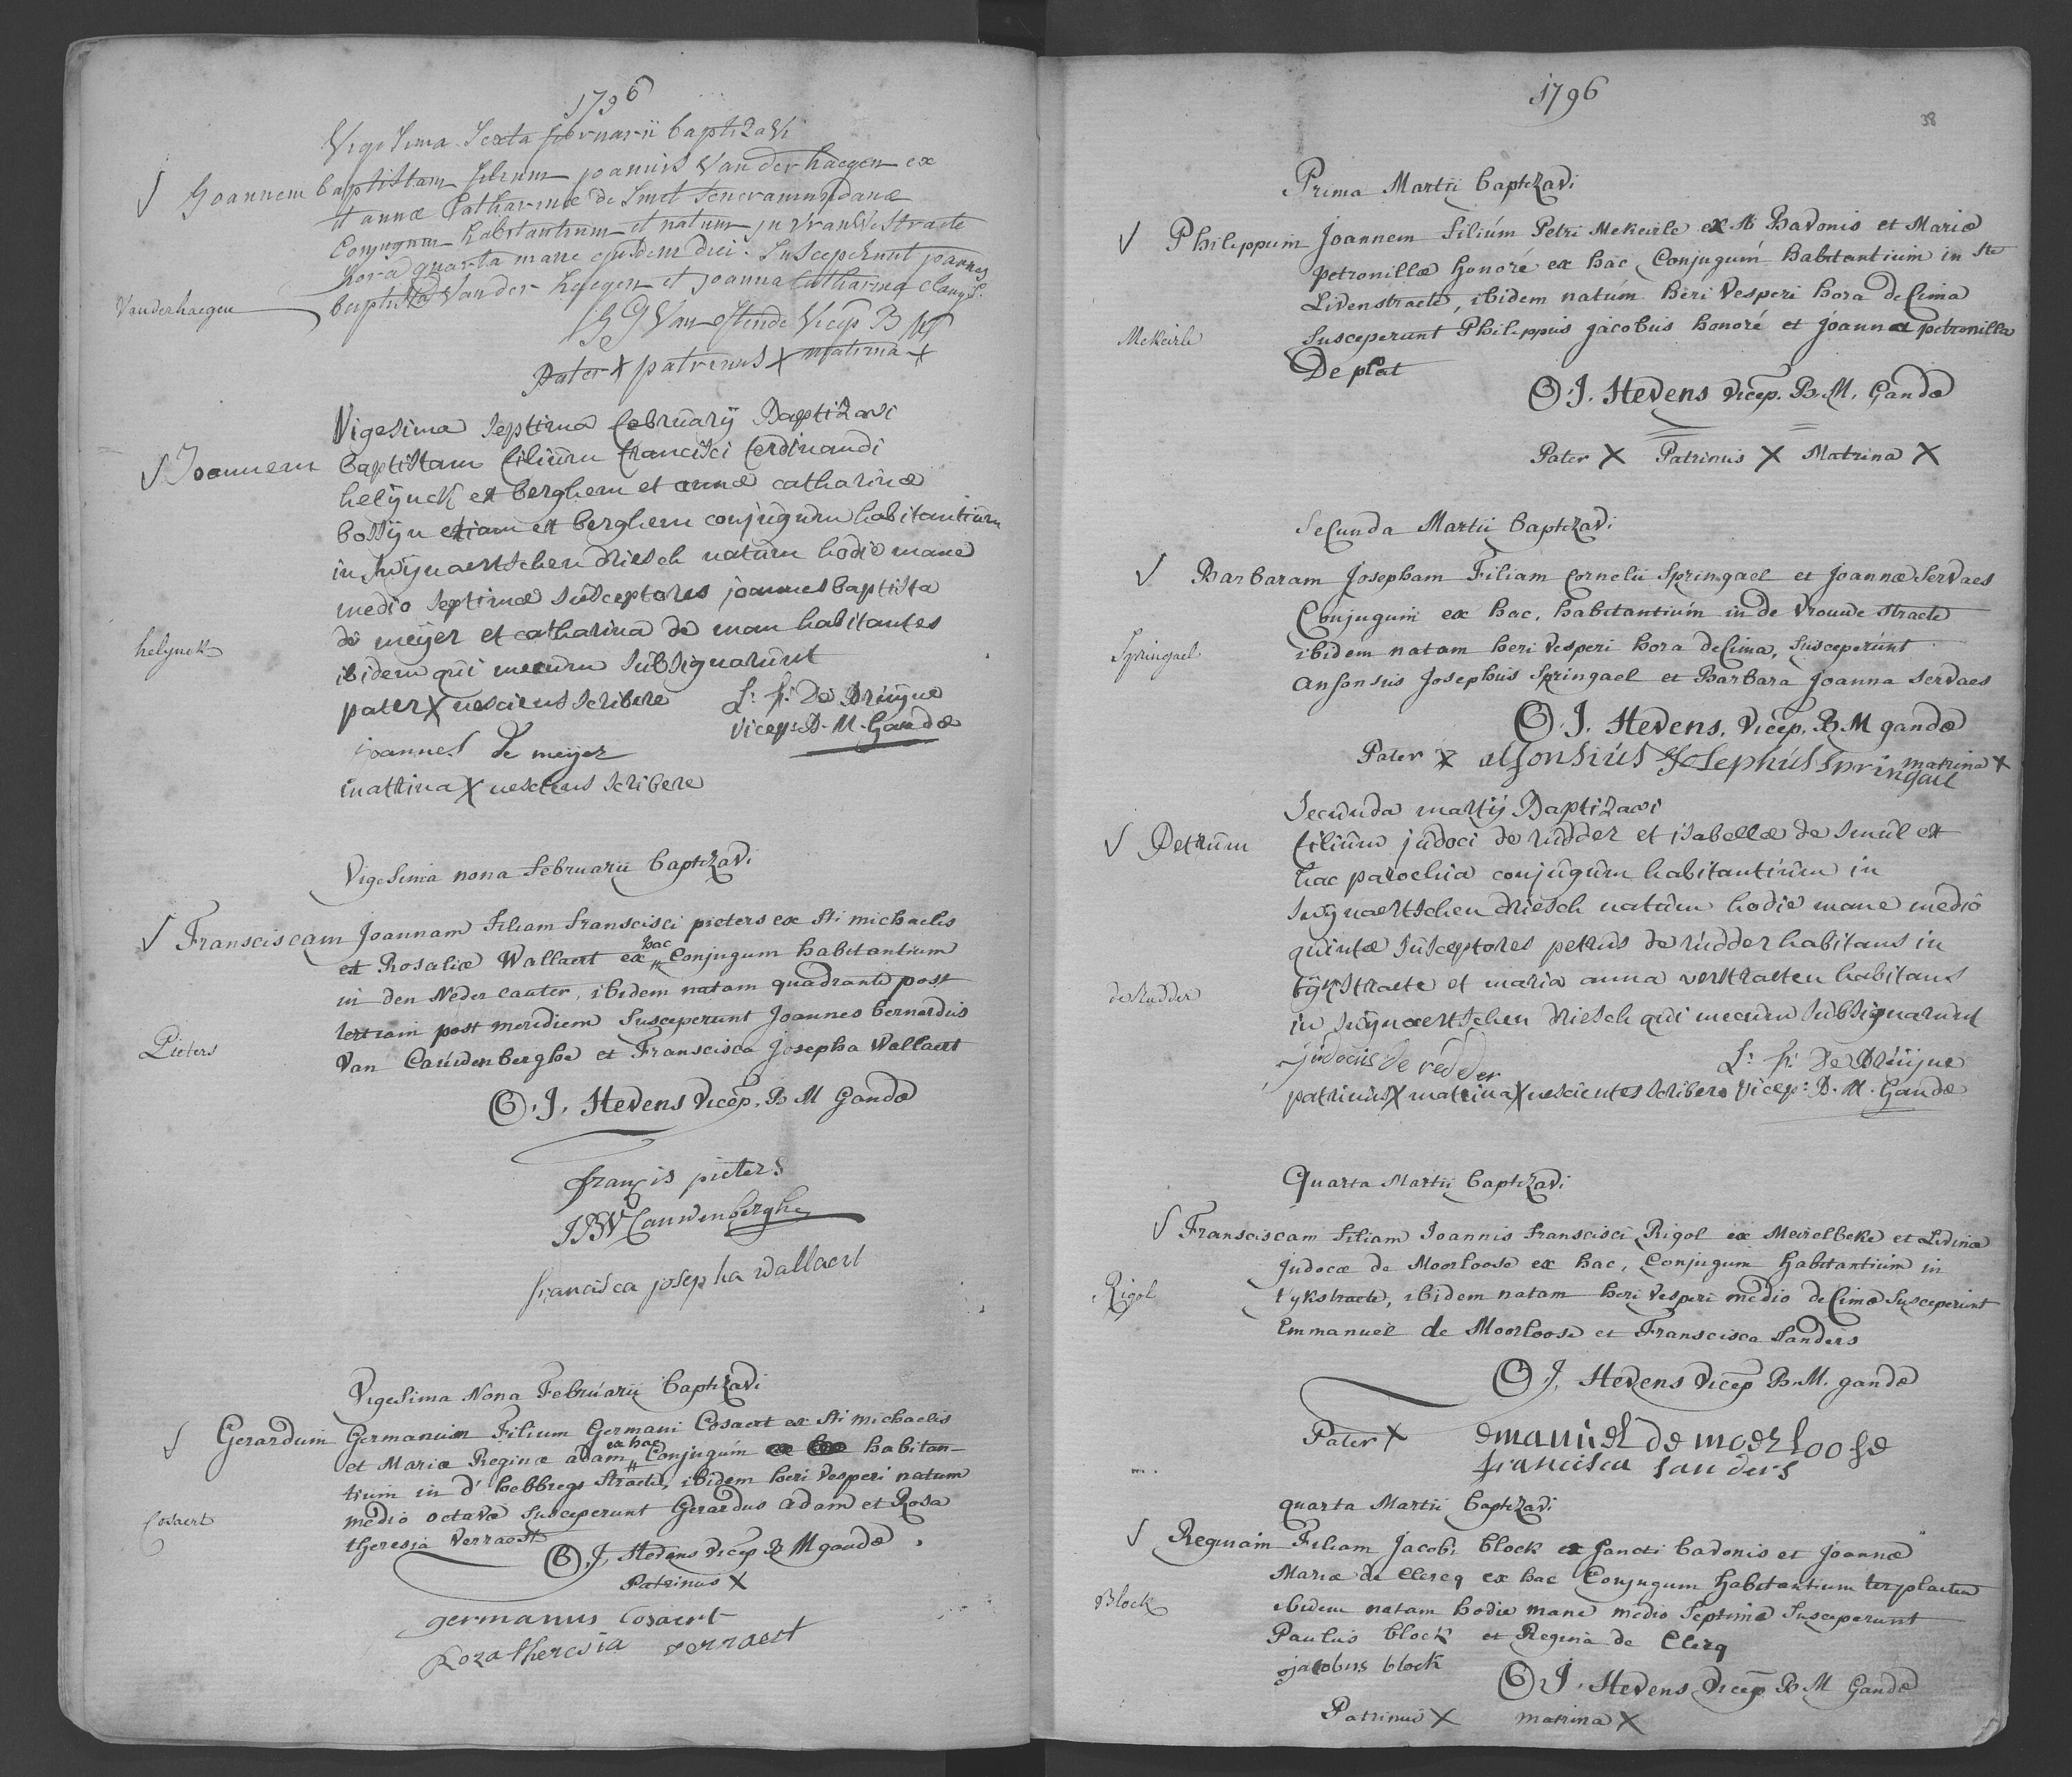 1796
Vigesima Sexta februarii baptizavi
Joannem baptistam filium joannis Van der haegen ex
et annæ Catharinæ de Smet Teneramundanæ
Conjugum habitantium et natum in Vrauwestraete
hora quarta mane ejusdem diei. Susceperunt joannes
baptista Van der haegen et joanna Catharina
Vanderhaegen
Van Ostende Vicep B M
Pater X patrinus X matrina X
Vigesima Septima february Baptizavi
Joannem baptistam filium francisci ferdinandi
helijnck ex berghem et annæ catharinæ
bossijn etiam ex berghem conjugum habitantium
in Swijnaertschen driesch natum hodie mane
medio septimæ susceptores joannes baptista
de meijer et catharina de man habitantes
helynck
ibidem qui mecum subsignarunt
pater X nesciens scribere L: F: De Bruijne
Vicep: B. M. Gandæ
joannes de meijer
matrina X nesciens scribere
Vigesima nona Februarii baptizavi
Fransciscam Joannam Filiam Franscisci pieters ex Sti michaelis
et Rosaliæ Wallaert ex hac Conjugum habitantium
in den Neder cauter, ibidem natam quadrante post
tertiam post meridiem Susceperunt Joannes bernardus
Pieters
Van Cauwenberghe et Franscisca Josepha Wallaert
J. Stevens Vicep. B M Gandæ
françis pieters
JBV Cauwenberghe
francisca josepha wallaert
Vigesima Nona Februarii baptizavi
Gerardum Germanum Filium Germani Cosaert ex Sti michaelis
et Mariæ Reginæ adam ex hac Conjugum habitan-
tium in d' hebbregt Straete, ibidem heri Vesperi natum
medio octavæ Susceperunt Gerardus adam et Rosa
Cosaert
theresia Verraest
J. Stevens Vicep B M gandæ
Patrinus X
germanus Cosaert
Roza theresia verraest
1796
38
Prima Martii baptizavi
Philippum Joannem Filium Petri Mekeirle ex Sti Bavonis et Mariæ
petronillæ honoré ex hac, Conjugum habitantium in Ste
Livenstraete, ibidem natum heri Vesperi hora decima
Mekeirle
Susceperunt Philippus jacobus honoré et joanna petronilla
De plat
J. Stevens Vicep. B. M. Gandæ
Pater X Patrinus X Matrina X
Secunda Martii baptizavi
Barbaram Josepham Filiam Cornelii Springael et Joannæ Servaes
Conjugum ex hac, habitantium in de Vrouwe straete
Springael
ibidem natam heri Vesperi hora decima, Susceperunt
Anfonsus Josephus Springael et Barbara Joanna Servaes
J. Stevens, Vicep. B M gandæ
Pater X alfonsius Josephus Springael matrina X
Secunda martij Baptizavi
Petrum filium judoci de rudder et isabellæ de smul ex
hac parochia conjugum habitantium in
Swijnaertschen driesch natum hodie mane medio
quintæ susceptores petrus de rudder habitans in
de Rudder
tijkstraete et maria anna verstraeten habitans
in swijnaertschen driesch qui mecum subsignarunt
judocus de redder L: F: De Bruijne
patrinus X matrina X nescientes scribere Vicep: B. M. Gandæ
Quarta Martii baptizavi
Fransciscam Filiam Joannis Franscisci Rigol ex Meirelbeke et Livinæ
Judocæ de Moorloose ex hac, Conjugum habitantium in
Rigol
tykstraete, ibidem natam heri Vesperi medio decimæ Susceperunt
Emmanuel de Moorloose et Franscisca Sanders
J. Stevens Vicep B. M. gandæ
Pater X emanuel de moerloose
francisca sanders
quarta Martii baptizavi
Reginam Filiam Jacobi block ex Sancti bavonis et Joannæ
Mariæ de Clercq ex hac Conjugum habitantium ter plaeten
Block
ibidem natam hodie mane medio Septimæ Susceperunt
Paulus block et Regina de Clerq
jacobus block
J. Stevens Vicep B M Gandæ
Patrinus X matrina X